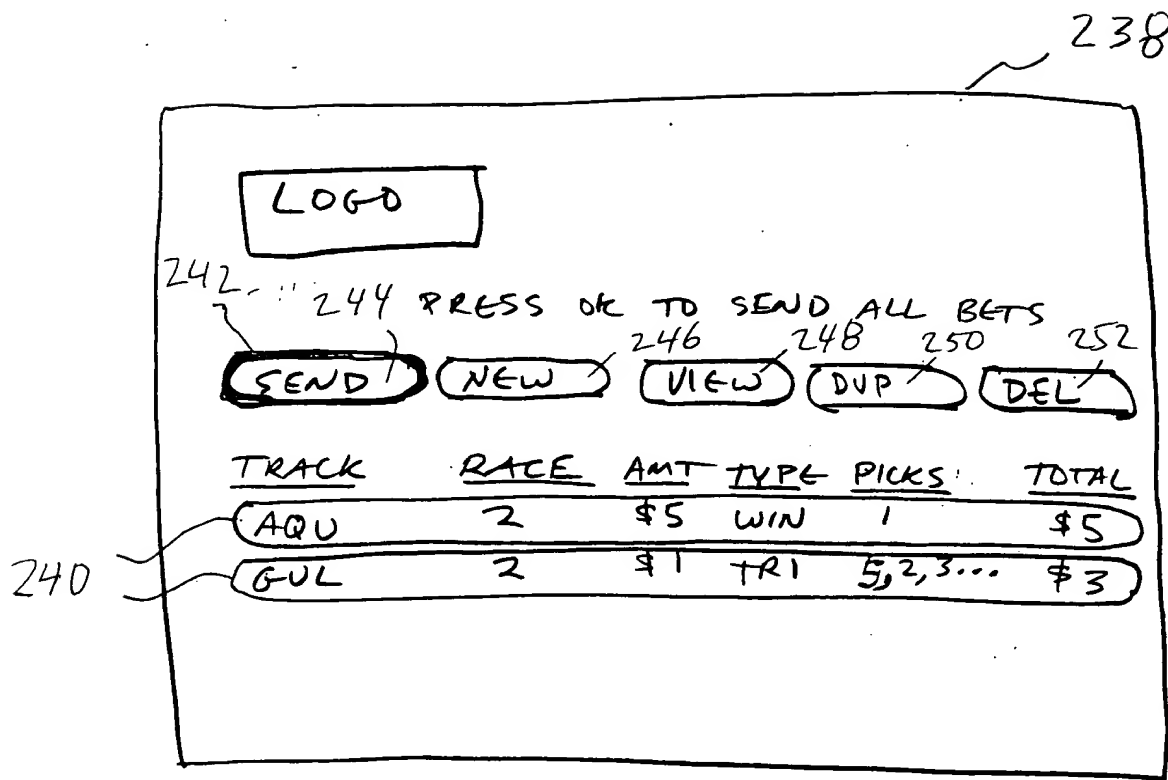 238
LOGO
242
244 PRESS OK TO SEND ALL BETS
246 248 250 252
SEND NEW VIEW DUP DEL
TRACK RACE AMT TYPE PICKS TOTAL
AQU 2 $5 WIN 1 $5
240
GUL 2 $1 TRI 5,2,3... $3